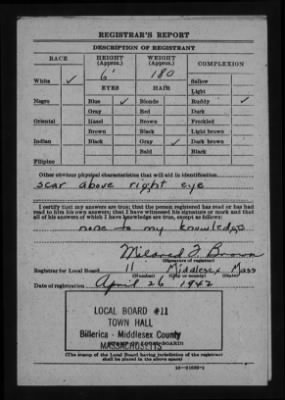 REGISTRAR'S REPORT
DESCRIPTION OF REGISTRANT
RACE HEIGHT (Approx.) WEIGHT (Approx.) COMPLEXION
6' 180
White ✓ Sallow
EYES HAIR Light
Negro Blue ✓ Blonde Ruddy ✓
Gray Red Dark
Oriental Hazel Brown Freckled
Brown Black Light brown
Indian Black Gray ✓ Dark brown
Bald Black
Filipino
Other obvious physical characteristics that will aid in identification
scar above right eye
I certify that my answers are true; that the person registered has read or has had
read to him his own answers; that I have witnessed his signature or mark and that
all of his answers of which I have knowledge are true, except as follows:
none to my knowledge
Mildred F Brown
(Signature of registrar)
Registrar for Local Board 11 Middlesex Mass
(Number) (City or county) (State)
Date of registration April 26 1942
LOCAL BOARD #11
TOWN HALL
Billerica - Middlesex County
MASSACHUSETTS
(The stamp of the Local Board having jurisdiction of the registrant
shall be placed in the above space)